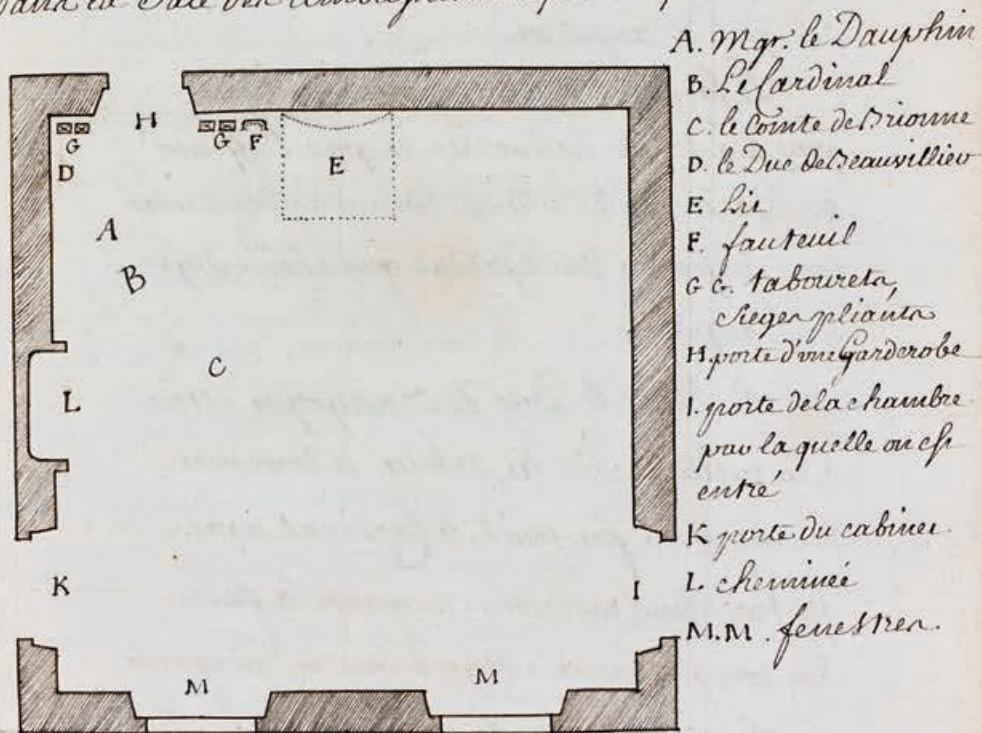 dans la Salle des
A. Mgr. le Dauphin
B. Le Cardinal
C. le Comte de Brionne
D. le Duc de Beauvillier
E Lit
F. fauteuil
G G. tabourets,
Sieges pliants
H. porte d'une Garderobe
I. porte de la chambre
par la quelle on est
entré
K porte du cabinet
L. cheminée
M.M. fenestres.
H
G
G
F
E
D
A
B
C
L
K
I
M
M